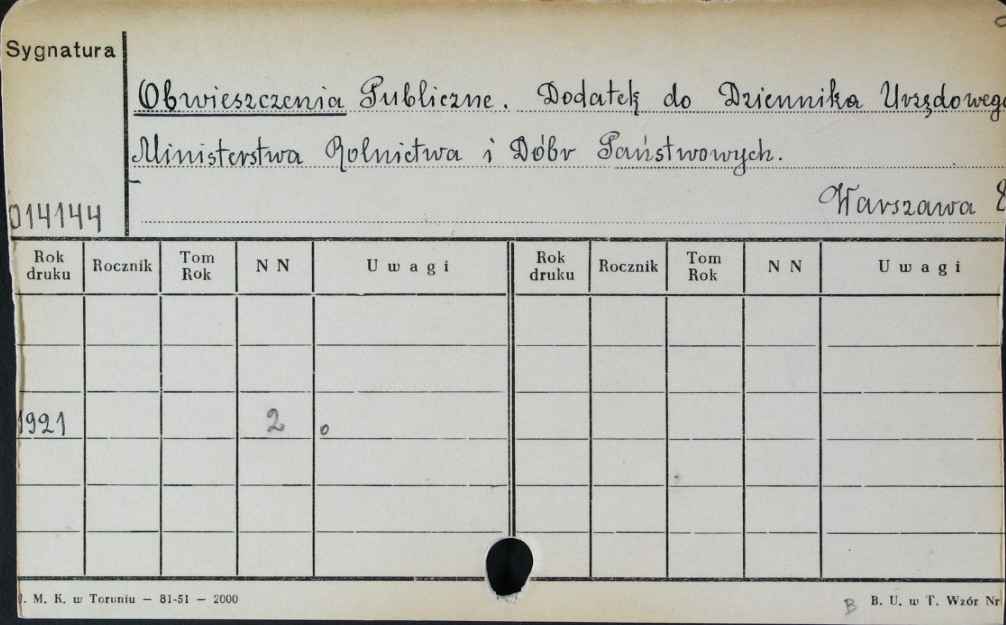 Sygnatura
Obwieszczenia Publiczne. Dodatek do Dziennika Urzędowego
Ministerstwa Rolnictwa i Dóbr Państwowych.
Warszawa
014144
Rok druku Rocznik Tom Rok N N Uwagi Rok druku Rocznik Tom Rok N N Uwagi
1921 2 o
. M. K. w Toruniu — 81-51 — 2000
B B. U. w T. Wzór Nr